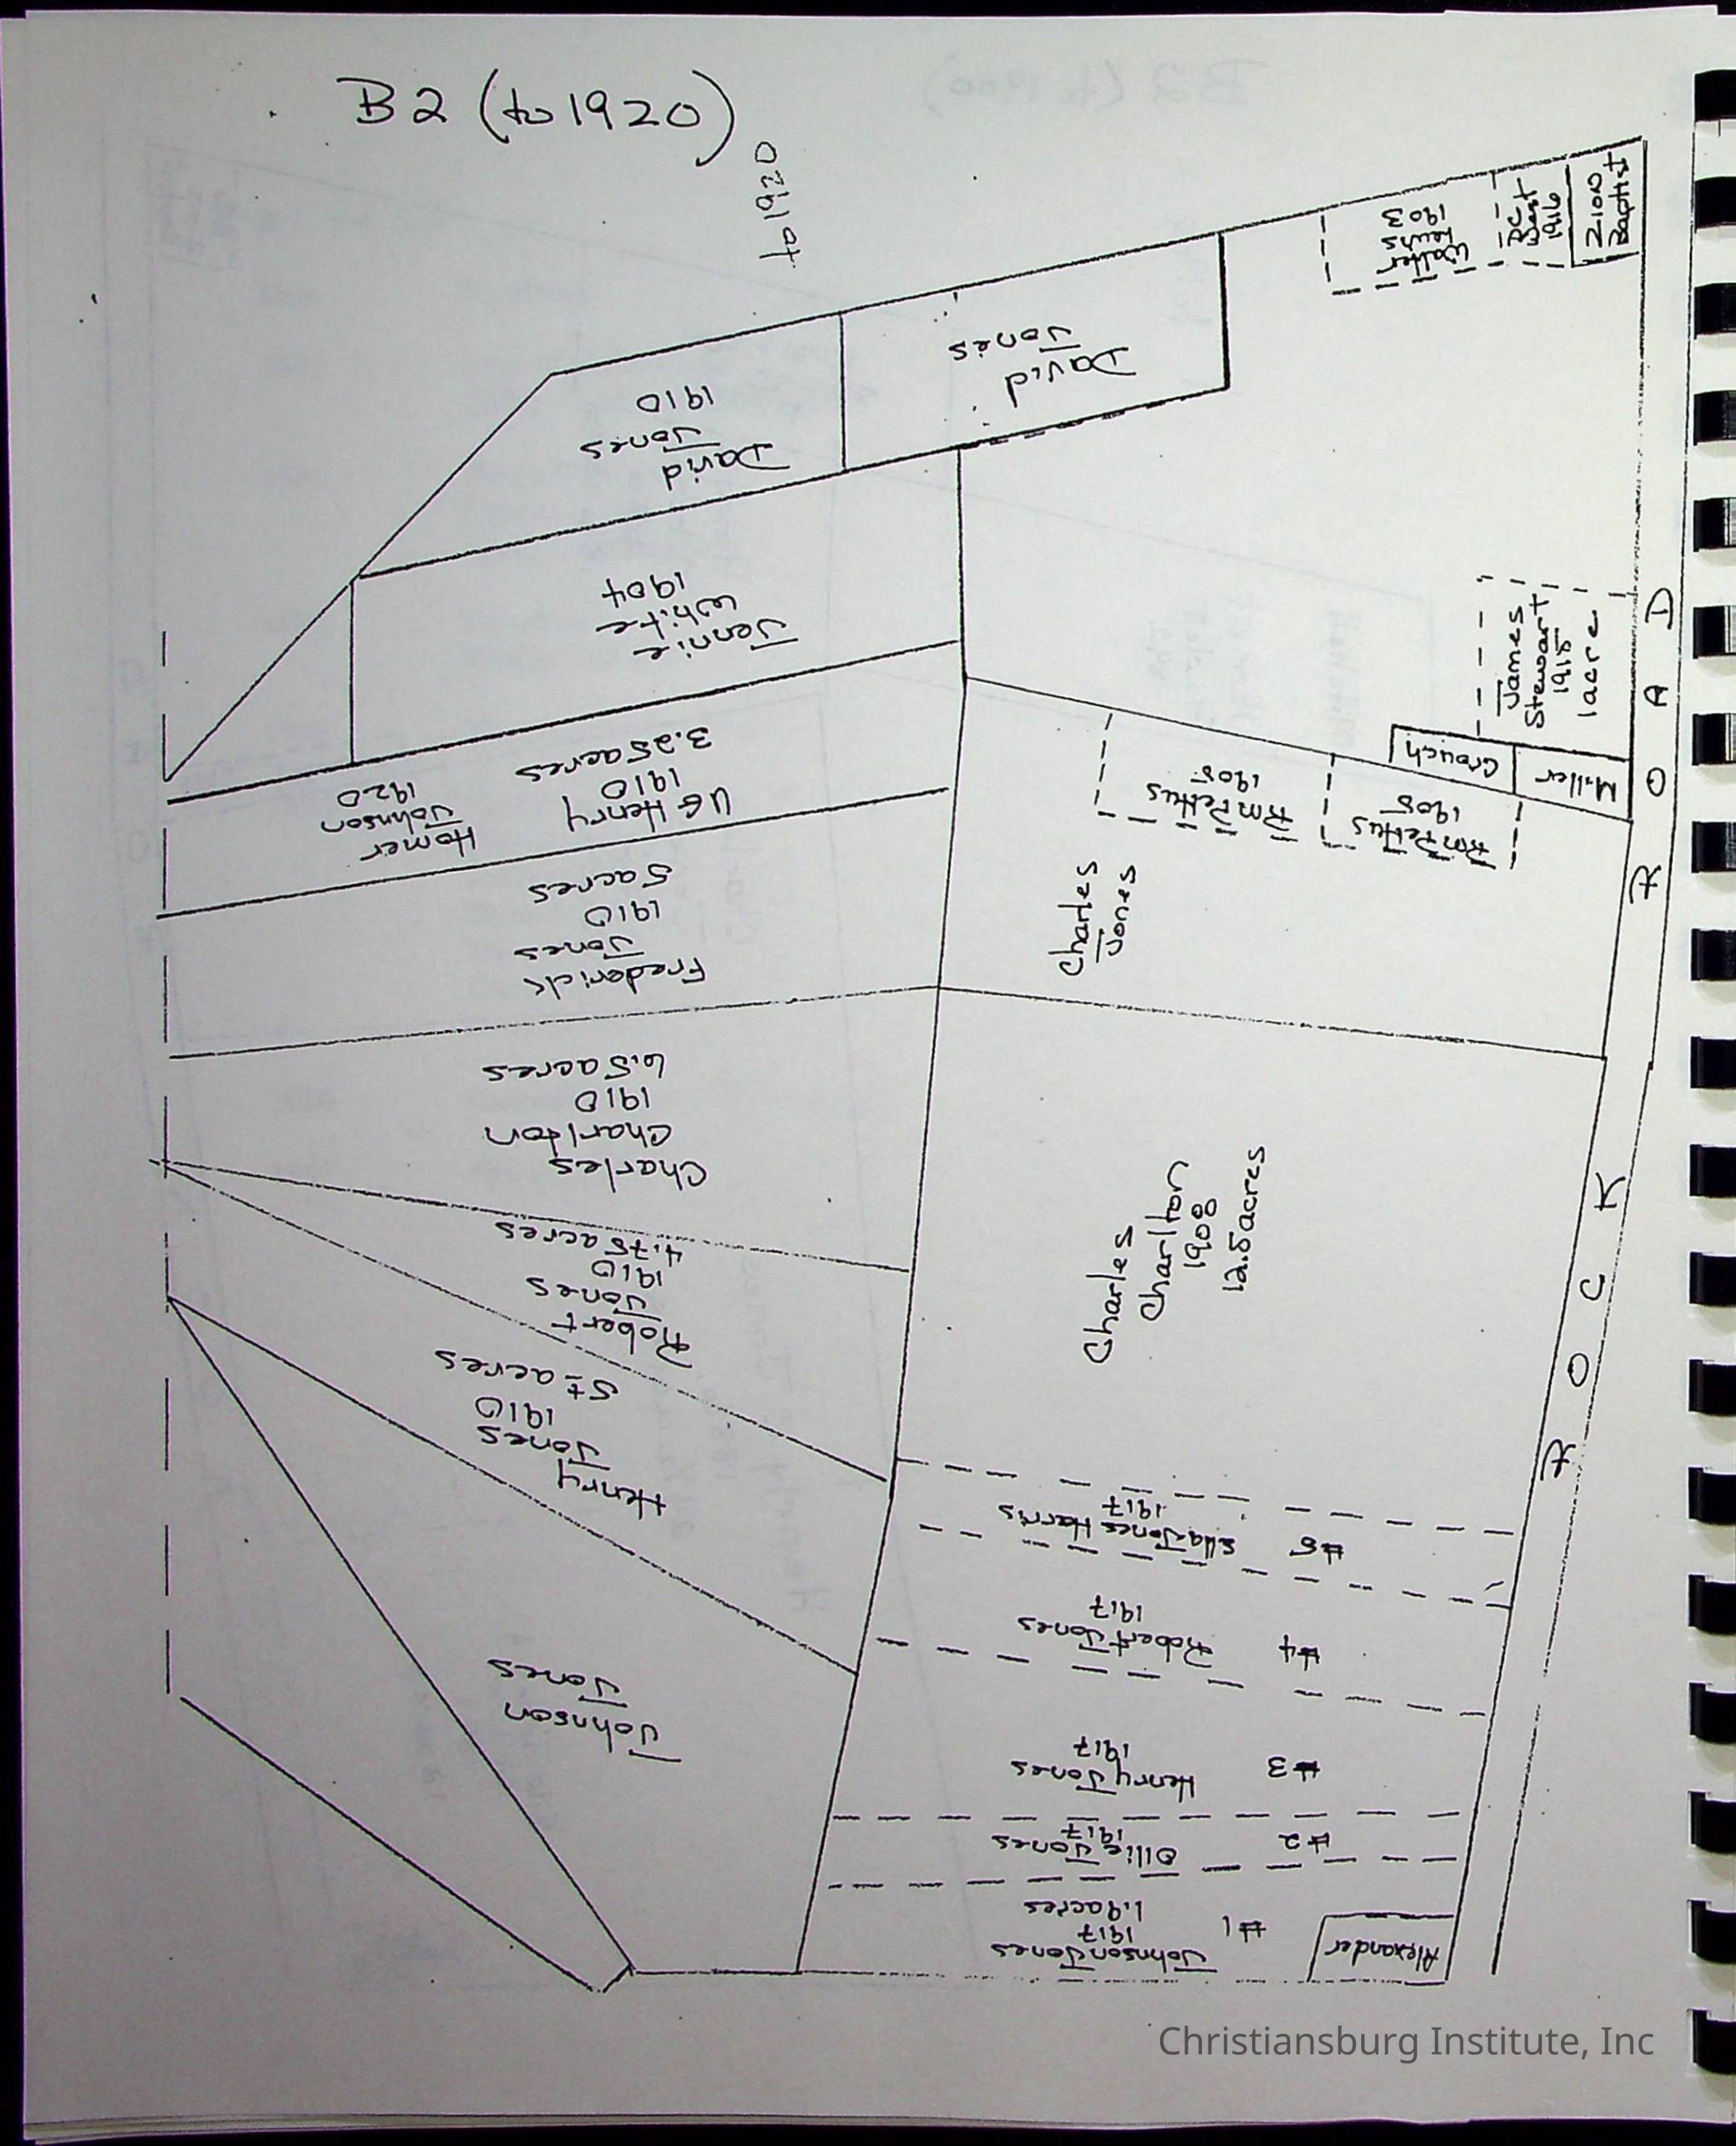 B2 (to 1920)
to 1920
Zion
Baptist
DC
West
1916
Walter
Lewis
1903
David
Jones
David
Jones
1910
Jennie
White
1904
James
Stewart
1918
1 acre
Crouch
Miller
RM Pettus
1905
RM Pettus
1905
UG Henry
1910
3.25 acres
Homer
Johnson
1920
Charles
Jones
Frederick
Jones
1910
5 acres
Charles
Charlton
1910
6.5 acres
Charles
Charlton
1908
12.5 acres
Robert
Jones
1910
4.75 acres
Henry
Jones
1910
5± acres
Johnson
Jones
#5 Ella Jones Harris
1917
#4 Robert Jones
1917
#3 Henry Jones
1917
#2 Ollie Jones
1917
#1 Johnson Jones
1917
1.9 acres
Alexander
ROCK ROAD
Christiansburg Institute, Inc